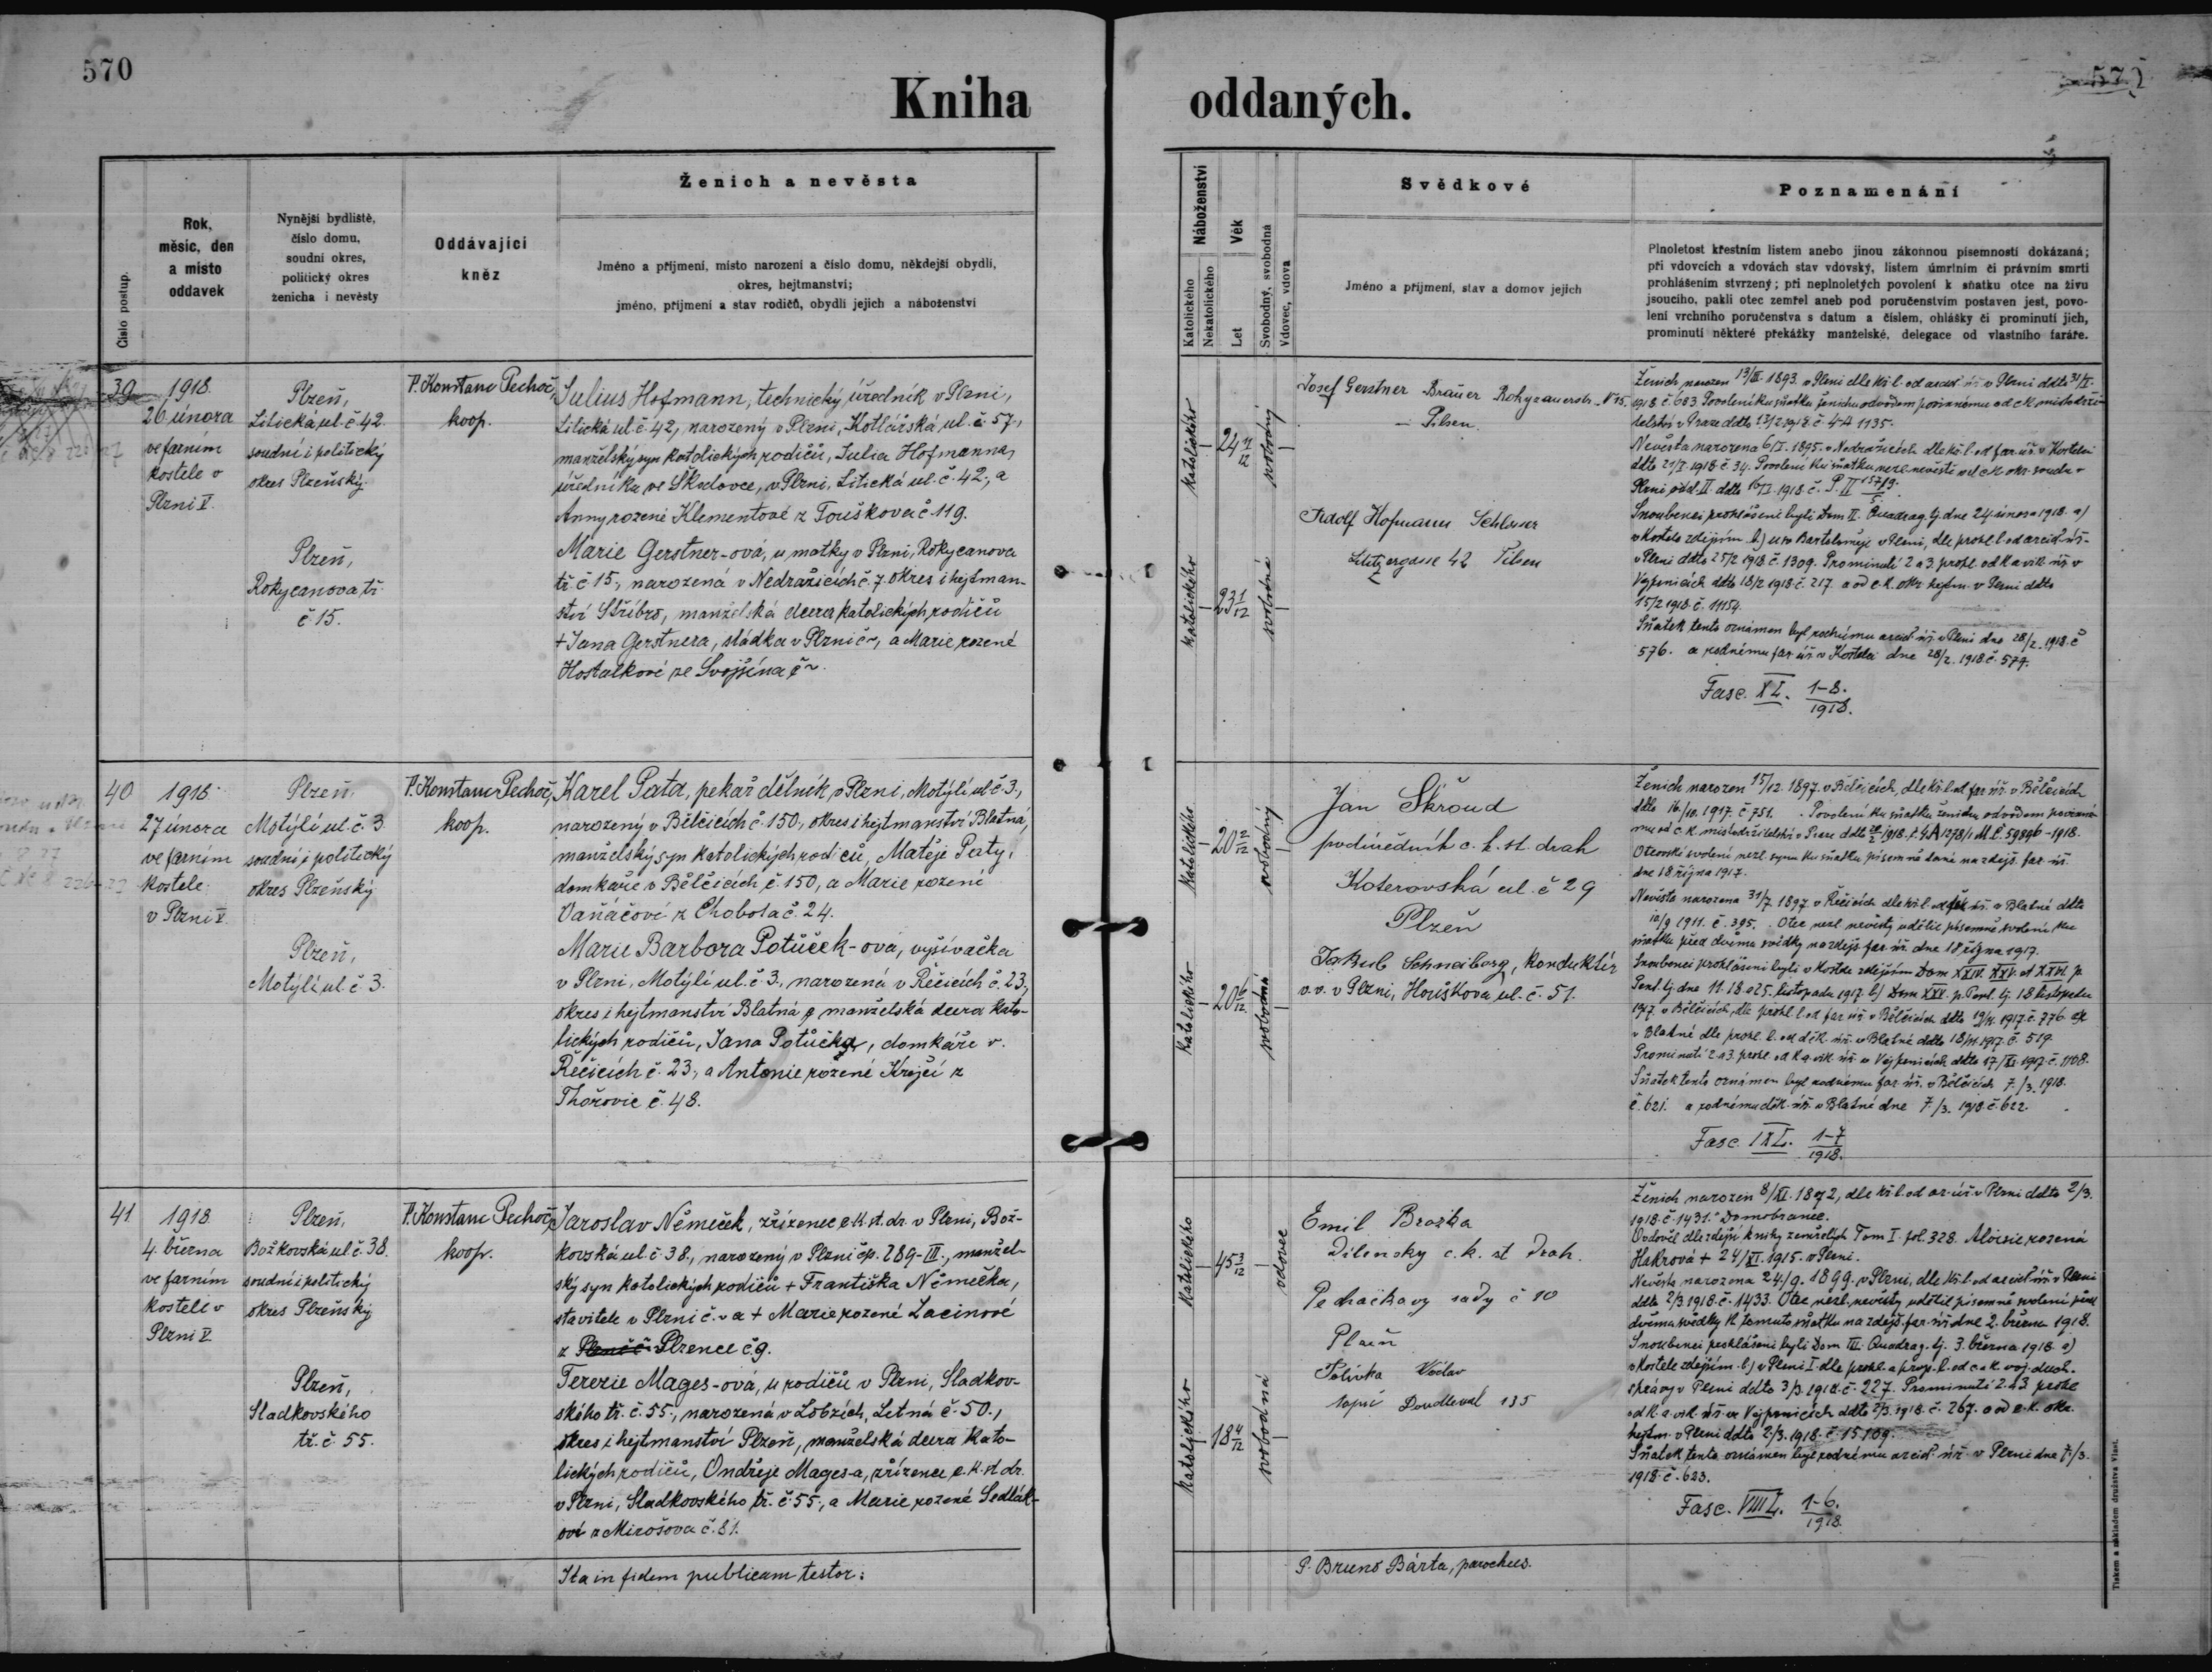 570
Kniha oddaných.
Číslo postup.
Rok,
měsíc, den
a místo
oddavek
Nynější bydliště,
číslo domu,
soudní okres,
politický okres
ženicha i nevěsty
Oddávající
kněz
Ženich a nevěsta
Jméno a příjmení, místo narození a číslo domu, někdejší obydlí,
okres, hejtmanství;
jméno, příjmení a stav rodičů, obydlí jejich a náboženství
Náboženství
Katolického
Nekatolického
Věk
Let
Svobodný, svobodná
Vdovec, vdova
Svědkové
Jméno a příjmení, stav a domov jejich
Poznamenání
Plnoletost křestním listem anebo jinou zákonnou písemností dokázaná;
při vdovcích a vdovách stav vdovský, listem úmrtním či právním smrti
prohlášením stvrzený; při neplnoletých povolení k sňatku otce na živu
jsoucího, pakli otec zemřel aneb pod poručenstvím postaven jest, povo-
lení vrchního poručenstva s datum a číslem, ohlášky či prominutí jich,
prominutí některé překážky manželské, delegace od vlastního faráře.
39
1918
26 února
ve farním
kostele v
Plzni V.
Plzeň,
Litická ul. č 42.
soudní i politický
okres Plzeňský.
Plzeň,
Rokycanova tř.
č 15.
P. Konstanc Pechoč,
koop.
Julius Hofmann, technický úředník v Plzni,
Litická ul. č. 42, narozený v Plzni, Kotlářská ul. č. 57,
manželský syn katolických rodičů, Julia Hofmanna,
úředníka ve Škodovce, v Plzni, Litická ul. č. 42., a
Anny rozené Klementové z Touškova č 119.
Marie Gerstner-ová, u matky v Plzni, Rokycanova
tř. č 15., narozená v Nedražicích č. 7. okres i hejtman-
ství Stříbro, manželská dcera katolických rodičů
+ Jana Gerstnera, sládka v Plzni č ~, a Marie rozené
Hostalkové ze Svojšína č ~.
katolického
24 11/12
svobodný
katolického
23 1/12
svobodná
Josef Gerstner Brauer Rokyzanerstr. N 15.
Pilsen
Adolf Hofmann Schlosser
Litizergasse 42 Pilsen
Ženich narozen 13/III 1893. v Plzni dle kř. l. od arcid. úř. v Plzni ddto 31/I.
1918. č 683 Povolení ku sňatku ženichu odvodem povinnému od c.k. místodrži-
telství v Praze ddto 13/2 1918. č. 4A 1135.
Nevěsta narozena 6/I. 1895. v Nedražicích dle kř. l. od far. úř. v Kostelci
ddto 27/I. 1918 č. 34. Povolení ku sňatku nezl. nevěstě od c.k. okr. soudu v
Plzni odd. II. ddto
Snoubenci prohlášeni byli Dom II. Quadrag. tj. dne 24. února 1918. a)
v kostele zdejším b) u sv Bartoloměje v Plzni, dle prohl. l. od arcid. úř.
v Plzni ddto 25/2 1918 č. 1309. Prominutí 2 a 3. prohl. od k. a vik. úř. v
Vejprnicích ddto 18/2 1918 č. 217. a od c.k. okr. hejtm. v Plzni ddto
15/2 1918. č. 11154.
Sňatek tento oznámen byl rodnému arcid. úř. v Plzni dne 28/2. 1918. č
576. a rodnému far. úř. v Kostelci dne 28/2. 1918. č. 577.
Fasc. XL. 1-8. / 1918.
40
1918
27 února
ve farním
kostele
v Plzni V.
Plzeň,
Motýlí ul. č. 3.
soudní i politický
okres Plzeňský
Plzeň,
Motýlí ul. č 3.
P. Konstanc Pechoč,
koop.
Karel Pata, pekař. dělník v Plzni, Motýlí ul. č 3.,
narozený v Bělčicích č. 150., okres i hejtmanství Blatná,
manželský syn katolických rodičů, Matěje Paty,
domkaře v Bělčicích č. 150, a Marie rozené
Vaňáčové z Chobota č. 24.
Marie Barbora Potůček-ová, vyšívačka
v Plzni, Motýlí ul. č 3., narozená v Řečicích č. 23.,
okres i hejtmanství Blatná, manželská dcera kato-
lických rodičů, Jana Potůčka, domkáře v
Řečicích č. 23., a Antonie rozené Krejčí z
Thořovic č. 48.
katolického
svobodný
katolického
svobodná
Jan Škroud
podúředník c. k. st. drah
Koterovská ul. č 29
Plzeň
Jakub Schneiberg, konduktér
v.v. v Plzni, Houškova ul. č. 51.
Ženich narozen 15/12. 1897. v Bělčicích, dle kř. l. od far. úř. v Bělčicích
ddto 16/10. 1917. č 751. Povolení ku sňatku ženichu odvodem povinné-
mu od c. k. místodržitelství v Praze ddto 1918. č. 4A 1278/1 M.Č. 59896-1918.
Otcovské svolení nezl. synu ku sňatku písemně dané na zdejš. far. úř.
dne 18 října 1917.
Nevěsta narozena 31/7. 1897. v Řečicích dle kř. l. od děk. úř. v Blatné ddto
10/9 1911. č. 395. Otec nezl. nevěsty udělil písemně svolení ku
sňatku před dvěma svědky na zdejš. far. úř. dne 18 října 1917.
Snoubenci prohlášeni byli v kostele zdejším Dom XXIV. XXV. et XXVI. p.
Pent. tj. dne 11. 18. a 25. listopadu 1917. b) Dom XXV. p. Pent. tj. 18 listopadu
1917. v Bělčicích, dle prohl. l. od far. úř. v Bělčicích ddto 19/11. 1917. č. 776.
v Blatné dle prohl. l. od děk. úř. v Blatné ddto 18/11. 1917. č. 519
Prominutí 2 a 3. prohl. od k. a. vik. úř. v Vejprnicích ddto 17/XI. 1917 č. 1108.
Sňatek tento oznámen byl rodnému far. úř. v Bělčicích 7./3. 1918.
č. 621. a rodnému děk. úř. v Blatné dne 7./3. 1918. č. 622.
Fasc. IXL. 1-7 / 1918.
41
1918
4. března
ve farním
kostele v
Plzni V.
Plzeň,
Božkovská ul. č. 38.
soudní i politický
okres Plzeňský
Plzeň,
Sladkovského
tř. č 55.
P. Konstanc Pechoč,
koop.
Jaroslav Němeček, zřízenec c.k. st. dr. v Plzni, Bož-
kovská ul. č. 38., narozený v Plzni čp. 289-III., manžel-
ský syn katolických rodičů + Františka Němečka,
stavitele v Plzni č. ~ a + Marie rozené Lacinové
z Plzence č. 9.
Terezie Mages-ová, u rodičů v Plzni, Sladkov-
ského tř. č. 55., narozená v Lobzích, Letná č. 50.,
okres i hejtmanství Plzeň, manželská dcera kato-
lických rodičů, Ondřeje Mages-a, zřízence c.k. st. dr.
v Plzni, Sladkovského tř. č. 55., a Marie rozené Sedlák-
ové z Mirošova č. 81.
katolického
45 3/12
vdovec
katolického
svobodná
Emil Brožka
Dílensky c. k. st drah
Pecháčkovy sady č 10
Plzeň
Polívka Václav
topič Doudlevce 135
Ženich narozen 8/XI. 1872, dle kř. l. od ar. úř. v Plzni ddto 2/3.
1918. č. 1431. Domobranec.
Ovdověl dle zdejší knihy zemřelých Tom I. fol. 328. Aloisie rozená
Hakrová + 24/XI. 1915. v Plzni.
Nevěsta narozena 24./9. 1899. v Plzni, dle kř. l. od arcid. úř. v Plzni
ddto 2/3. 1918. č. 1433. Otec nezl. nevěsty udělil písemně svolení před
dvěma svědky k tomuto sňatku na zdejš. far. úř. dne 2. března 1918.
Snoubenci prohlášeni byli Dom III. Quadrag. tj. 3. března 1918. a)
v kostele zdejším b) v Plzni I. dle prohl. a prop. l. od c. a k. voj. duch.
správy v Plzni ddto 3/3. 1918. č. 227. Prominutí 2. a 3 prohl.
od k. a. vik. úř. ve Vejprnicích ddto 2/3. 1918. č. 267. a od c. k. okr.
hejtm. v Plzni ddto 2/3. 1918. č. 15109.
Sňatek tento oznámen byl rodnému arcid. úř. v Plzni dne 7./3.
1918. č. 623.
Fasc. VIIIL. 1-6. / 1918.
Ita in fidem publicam testor:
P. Bruno Bárta, parochus.
Tiskem a nákladem družstva Vlast.